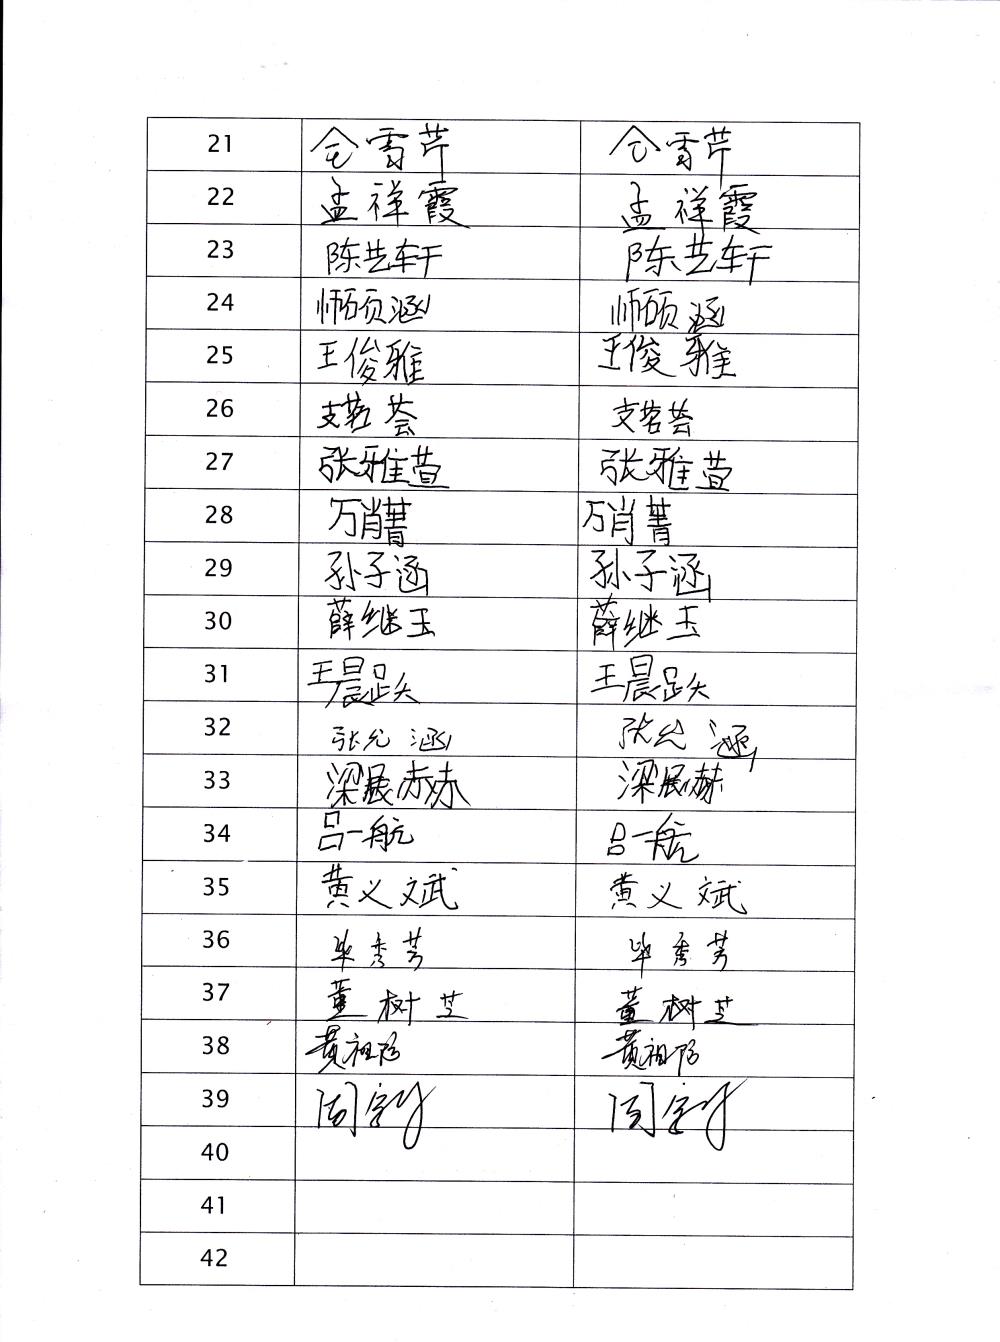 21 仝雪芹 仝雪芹
22 孟祥霞 孟祥霞
23 陈艺轩 陈艺轩
24 师硕涵 师硕涵
25 王俊雅 王俊雅
26 支茗荟 支茗荟
27 张雅萱 张雅萱
28 万肖菁 万肖菁
29 孙子涵 孙子涵
30 薛继玉 薛继玉
31 王晨跃 王晨跃
32 张允涵 张允涵
33 梁展赫 梁展赫
34 吕一航 吕一航
35 黄义斌 黄义斌
36 毕秀芳 毕秀芳
37 董树芝 董树芝
38 黄祖 黄祖
39 周 周
40
41
42